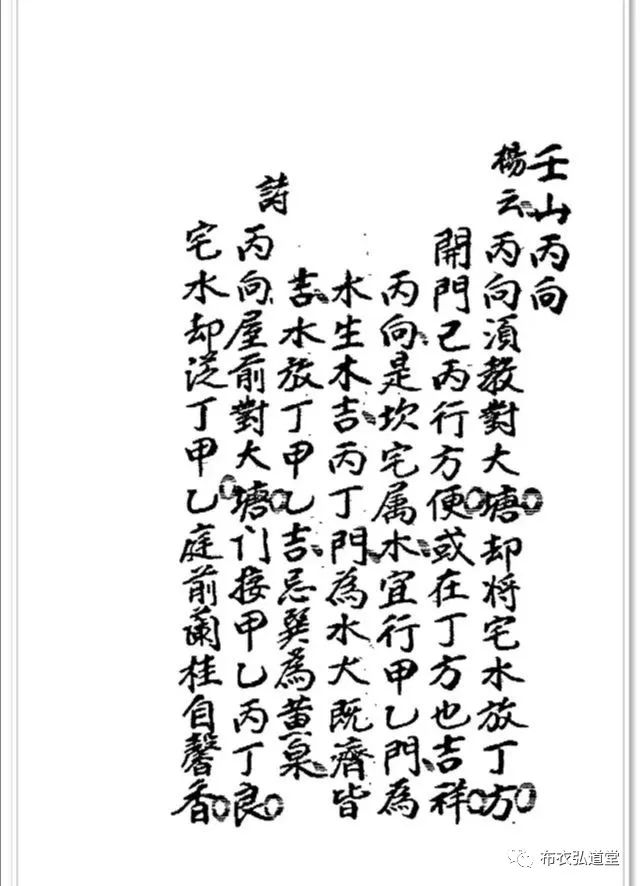 壬山丙向
楊云丙向湏教對大塘却将宅水放丁方
開門己丙行方便或在丁方也吉祥
丙向是坎宅属水宜行甲乙門為
水生木吉丙丁門為水大既濟皆
吉水放丁甲乙吉忌巽為黄泉
詩
丙向屋前對大塘门接甲乙丙丁良
宅水却從丁甲乙庭前蘭桂自馨香
布衣弘道堂